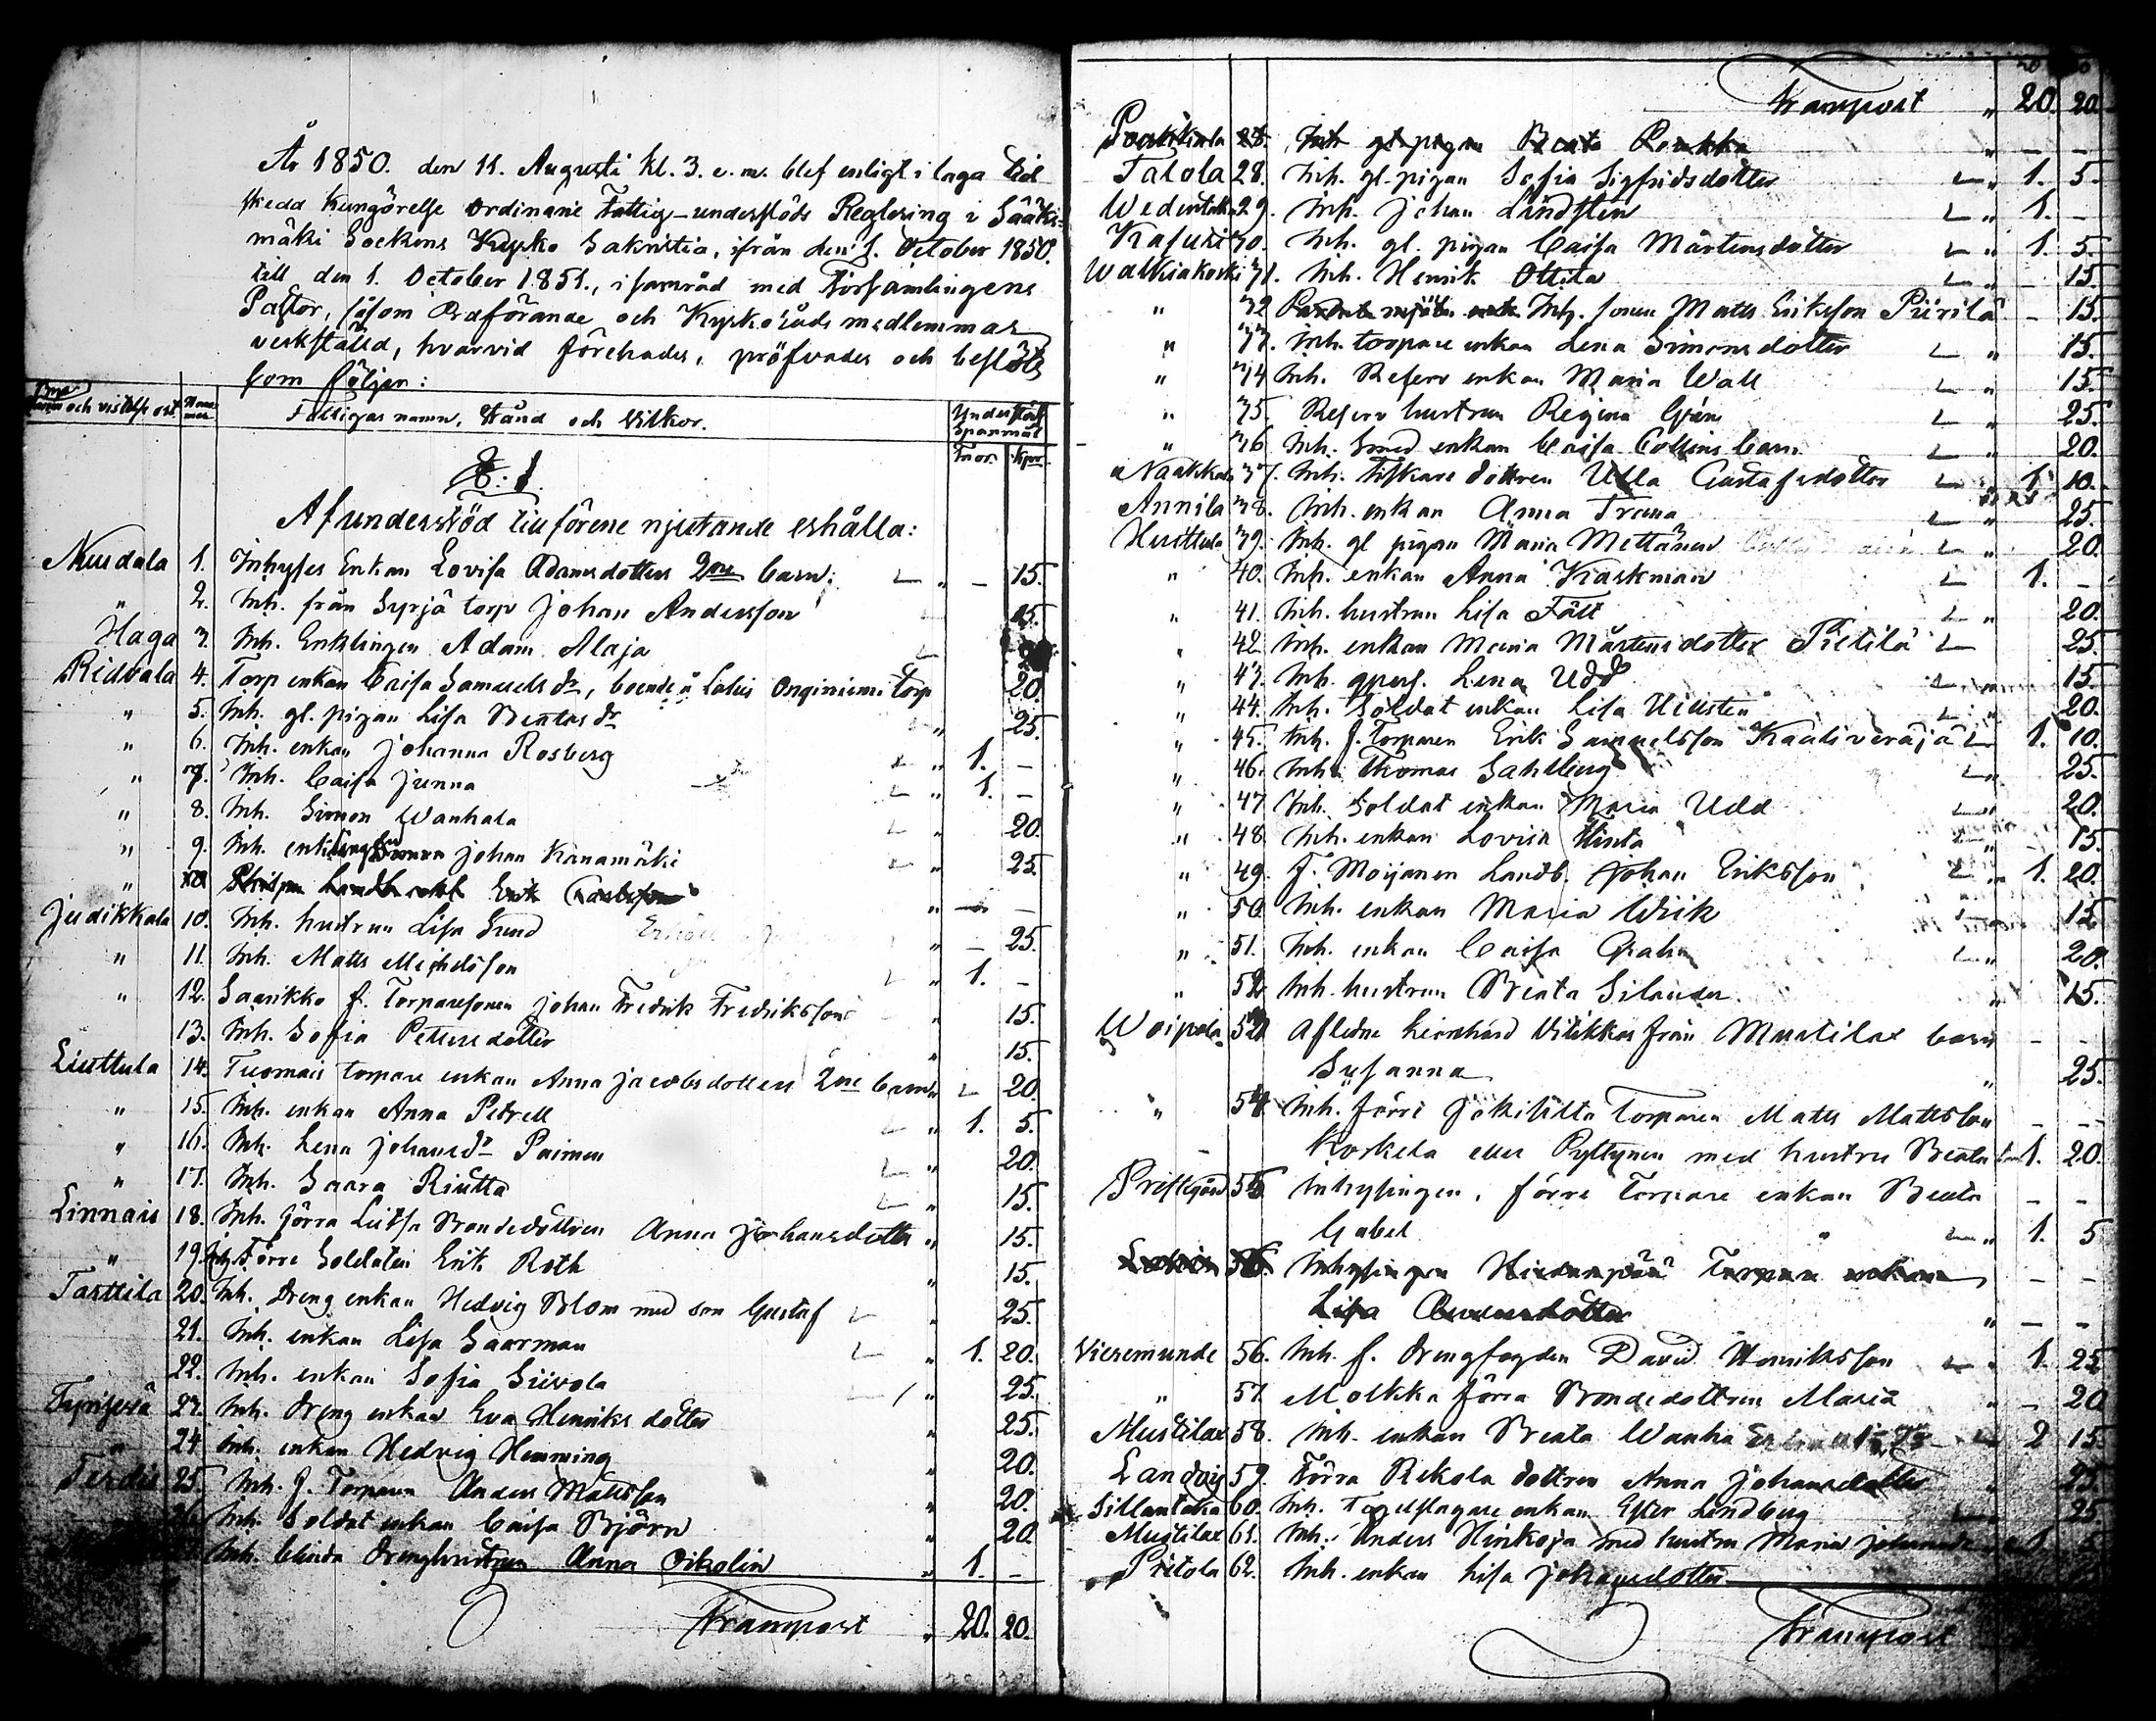 År 1850. den 11. Augusti kl. 3. e. m. blef enligt i laga tid
skedd kungörelse Ordinarie Fattig-understöds Reglering i Sääks-
mäki Sockens Kyrko Sakristia, ifrån den 1. October 1850.
till den 1. October 1851., i samråd med Församlingens
Pastor, såsom Ordförande och Kyrkoråds medlemmar
verkställd, hvarvid förehades, pröfvades och beslöts
som följer:
och vistelse ort. Num mer Fattigas namn, Stånd och Vilkor. Understöd Spannmål
Tnor. Kpr
§. 1.
Af understöd tillförene njutande erhålla:
Nuudala 1. Inhyses Enkan Lovisa Adamsdotters 2ne barn: " – 15.
" 2. Inh. från Syrjä torp Johan Andersson 15.
Haga 3. Inh. Enklingen Adam Alaja
Ridvala 4. Torp enkan Caisa Samuels dr, boende å Lalus Onginiemi torp 20.
" 5. Inh. gl. pigan Lisa Beatas dr " 25.
" 6. Inh. enkan Johanna Rosberg " 1. –
" 7. Inh. Caisa Junna " 1. –
" 8. Inh. Simon Wanhala " 20.
" 9. Inh. enklingen Johan Kanamäki " 25.
" 10. Erik Carlsson " – –
Judikkala 10. Inh. hustrun Lisa Sund " – 25.
" 11. Inh. Matts Michelsson " 1. –
" 12. Saarikko f. Torparesonen Johan Fredrik Fredriksson " 15.
13. Inh. Sofia Petersdotter " 15.
Liuttula 14. Tuomais torpare enkan Anna Jacobsdotters 2ne barn 20.
" 15. Inh. enkan Anna Petrell " 1. 5.
" 16. Inh. Lena Johansdr Paimen " 20.
" 17. Inh. Saara Riutta " 15.
Linnais 18. Inh. förra Luitsa Bondedottren Anna Johansdotter " 15.
" 19. Inh. Förre Soldaten Erik Roth " 15.
Tarttila 20. Inh. Dreng enkan Hedvig Blom med son Gustaf " 25.
21. Inh. enkan Lisa Saarman " 1. 20.
22. Inh. enkan Sofia Siivola " 25.
23. Inh. Dreng enkan Eva Henriks dotter " 25.
" 24. Inh. enkan Hedvig Hemming " 20.
25. Inh. f. Torparen Anders Mattsson " 20.
26. Inh. Soldat enkan Caisa Björn " 20.
Inh. blinda Drenghustrun Anna Oikolin " 1. –
Transport " 20. 20.
Transport " 20. 20.
28. Inh. gl. pigan Beata " – –
Talola 28. Inh. gl. pigan Sofia Sigfridsdotter " 1. 5.
29. Inh. Johan Lindsten " 1. –
30. Inh. gl. pigan Caisa Mårtensdotter " 1. 5.
Walkiakoski 31. Inh. Henrik Ottila " – 15.
" 32. Inh. sonen Matts Eriksson Piirilä – 15.
" 33. Inh. torpare enkan Lena Simonsdotter " 15.
" 34. Inh. Reserv enkan Maria Wall " 15.
" 35. Reserv hustrun Regina " 25.
" 36. Inh. Smed enkan Caisa Collins barn " 20.
Naakkala 37. Inh. Fiskare dottren Ulla Gustafsdotter " 1. 10.
Annila 38. Inh. enkan Anna Trana " 25.
Huittula 39. Inh. gl pigan Maria Mettänen " 20.
" 40. Inh. enkan Anna Karkman 1. –
" 41. Inh. hustrun Lisa Fält " 20.
" 42. Inh. enkan Maria Mårtensdotter Pietilä 25.
" 43. Inh. Lena Udd 15.
" 44. Inh. Soldat enkan Lisa " 20.
" 45. Inh. f. Torparen Erik Samuelsson 1. 10.
" 46. Inh. Thomas Sahlberg " 25.
" 47. Inh. Soldat enkan Maria Udd 20.
" 48. Inh. enkan Lovisa Hinta " 15.
" 49. F. Moijanen Landb. Johan Eriksson " 1. 20.
" 50. Inh. enkan Maria Wiik 15.
" 51. Inh. enkan Caisa Grahn " 20.
" 52. Inh. hustrun Beata Silander " 15.
Woipala 53. Aflidne Leonhard Vilikkas från Mustilas barn – –
Susanna " 25.
" 54. Inh. förre Jokitiilta Torparen Matts Mattsson – –
Korkela eller Pyltynen med hustru Beata 1. 20.
55. Inhysingen, förre Torpare enkan Beata – –
Gabel " 1. 5
56. Inhysingen Torpare enkan – –
Lisa Andersdotter " – –
Vieremunde 56. Inh. f. Drengfogden David Henriksson " 1. 25
" 57. Molkka förra Bondedottren Maria " – 20
Mustilas 58. Inh. enkan Beata Wanha 2 15.
59. Förra Rekola dottren Anna Johansdotter " 25.
60. Inh. Tegelslagare enkan Ester Lindberg 25
Mustilas 61. Inh. Anders Hinkoja med hustru Maria 1. 5
Pritola 62. Inh. enkan Lisa Johansdotter
Transport